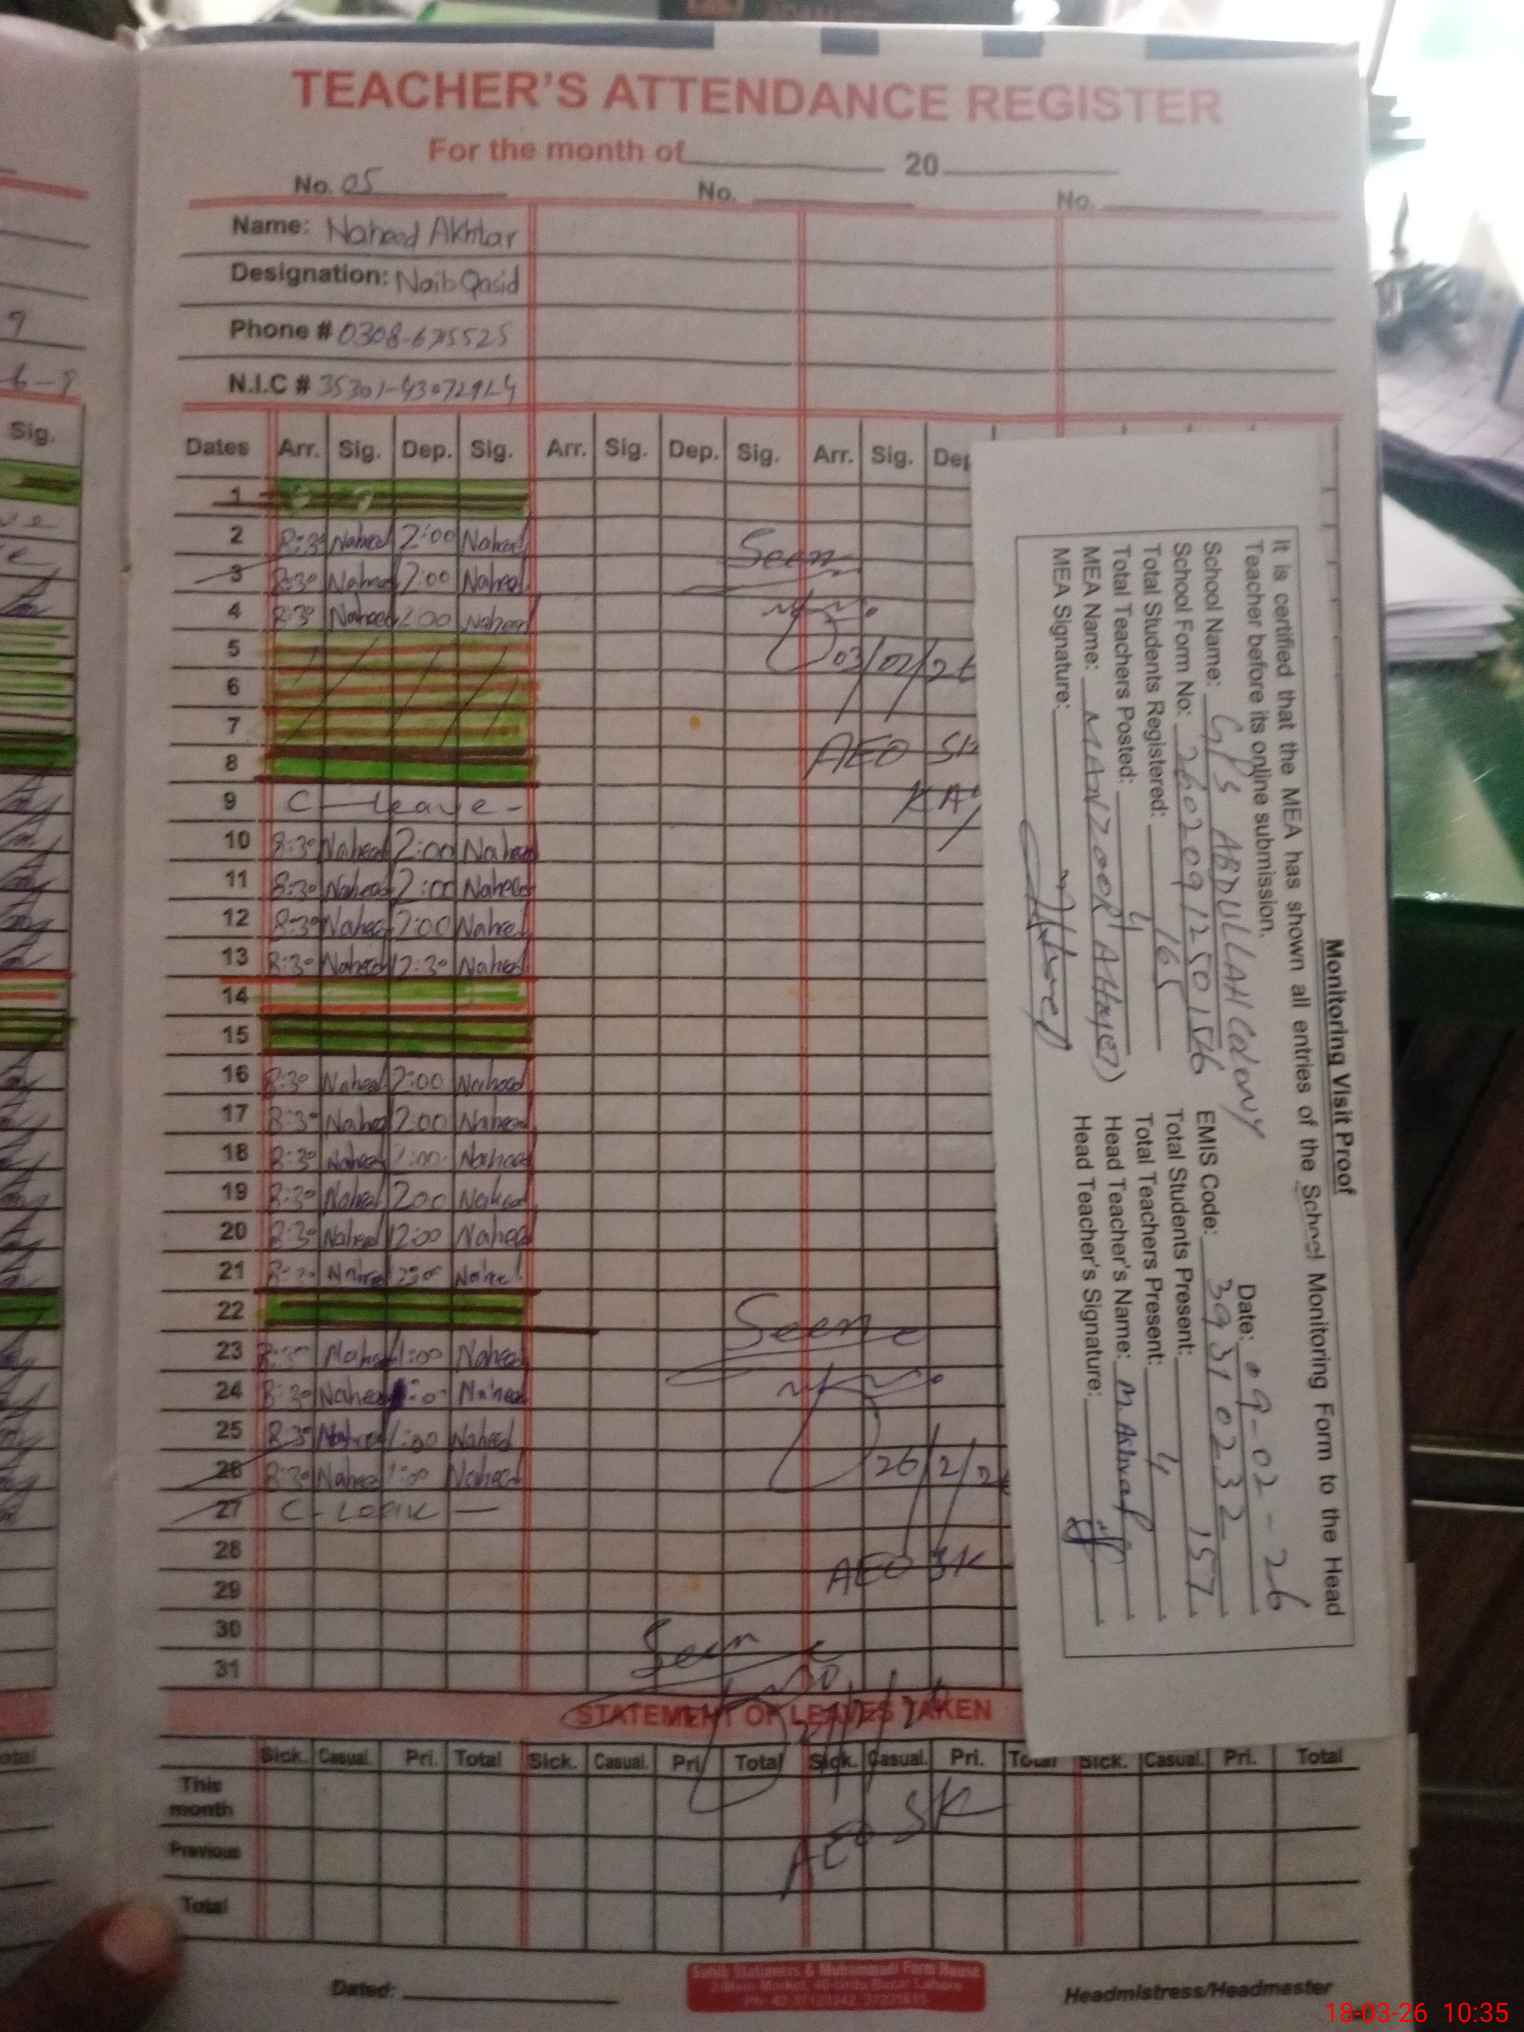 TEACHER'S ATTENDANCE REGISTER
For the month of 20
No. 05 No. No.
Name: Naheed Akhtar
Designation: Naib Qasid
Phone #
N.I.C #
Sig.
Dates Arr. Sig. Dep. Sig. Arr. Sig. Dep. Sig. Arr. Sig. Dep
1
2 8:30 Naheed 2:00 Naheed
3 8:30 Naheed 2:00 Naheed
4 8:30 Naheed 2:00 Naheed
5
6
7
8
9 C-leave-
10 8:30 Naheed 2:00 Naheed
11 8:30 Naheed 2:00 Naheed
12 8:30 Naheed 2:00 Naheed
13 8:30 Naheed 12:30 Naheed
14
15
16 8:30 Naheed 2:00 Naheed
17 8:30 Naheed 2:00 Naheed
18 8:30 Naheed Naheed
19 8:30 Naheed 2:00 Naheed
20 8:30 Naheed 12:00 Naheed
21 Naheed Naheed
22
23 8:30 Naheed 1:00 Naheed
24 8:30 Naheed Naheed
25 8:30 Naheed 1:00 Naheed
26 8:30 Naheed 1:00 Naheed
27 C-
28
29
30
31
Seen
03/02/26
AEO SK
Seen
26/2/2
AEO SK
Seen
AEO SK
Monitoring Visit Proof
It is certified that the MEA has shown all entries of the School Monitoring Form to the Head
Teacher before its online submission.
Date: 09-02-26
School Name: GPS ABDULLAH COLONY
School Form No: EMIS Code: 39310232
Total Students Registered: 165 Total Students Present: 157
Total Teachers Posted: 4 Total Teachers Present: 4
MEA Name: MANZOOR AHMED Head Teacher's Name: M. Ashraf
MEA Signature: Head Teacher's Signature:
STATEMENT OF LEAVES TAKEN
Sick. Casual. Pri. Total Sick. Casual. Pri. Total Sick. Casual. Pri. Total Sick. Casual. Pri. Total
This month
Previous
Total
Dated:
Sahib Stationers & Muhammadi Form House
Headmistress/Headmaster
18-03-26 10:35